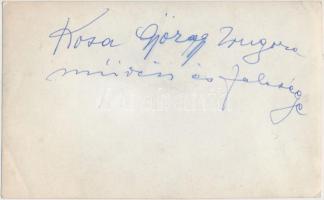 Kosa György Zongora
művész és felesége